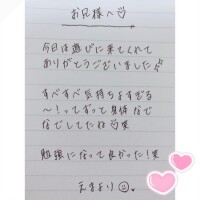 お兄様へ♡
今日は遊びに来てくれて
ありがとうございました
すべすべ気持ちよすぎる
〜！ってずっと身体なで
なでしてたね♡笑
勉強になって良かった！笑
えまより